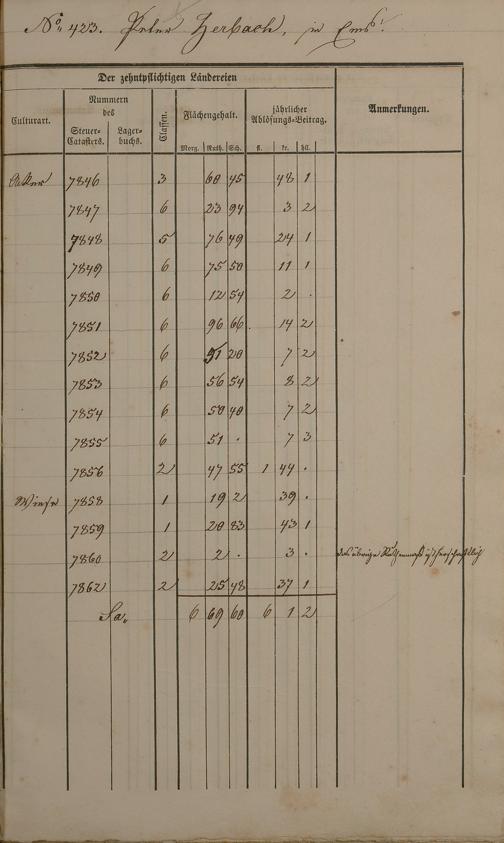 No. 423. Peter Herbach, in Ems.
Der zehntpflichtigen Ländereien
Culturart.
Nummern des
Steuer-Catasters.
Lager-buchs.
Classen.
Flächengehalt.
jährlicher Ablösungs-Beitrag.
Anmerkungen.
Morg. Ruth. Sch. fl. kr. hll.
Acker 7846 3 60 45 48 1
7847 6 23 94 3 2
7848 5 76 49 24 1
7849 6 75 50 11 1
7850 6 12 54 2 .
7851 6 96 66 14 2
7852 6 51 20 7 2
7853 6 56 54 8 2
7854 6 50 40 7 2
7855 6 51 . 7 3
7856 2 47 55 1 44 .
Wiese 7858 1 19 2 39 .
7859 1 20 83 43 1
7860 2 2 . 3 . das übrige Ruthenmaß ist herrschaftlich
7862 2 25 48 37 1
Sa. 6 69 60 6 1 2